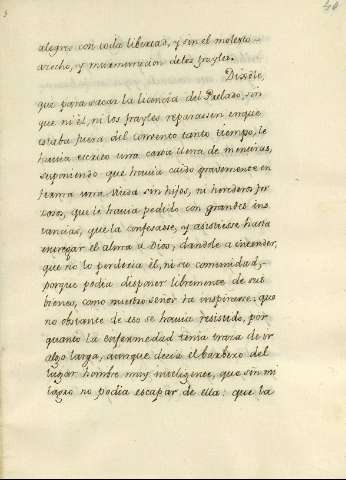 40
alegres con toda libertad, y sin el molesto
azecho, y murmuracion de los frayles.
Dixole,
que para sacar la licencia del Prelado, sin
que ni el, ni los frayles reparasen en que
estaba fuera del convento tanto tiempo, le
havia escrito una carta llena de mentiras,
suponiendo que havia caido gravemente en
ferma una Viuda sin hijos, ni herederos for
zosos, que le havia pedido con grandes ins
tancias, que la confesasse, y asistiesse hasta
entregar el alma a Dios, dandole a entender,
que no lo perderia el, ni su comunidad,
porque podia disponer libremente de sus
bienes, como nuestro señor la inspirase: que
no obstante de eso se havia resistido, por
quanto la enfermedad tenia traza de ir
algo larga, aunque decia el barbero del
lugar hombre muy inteligente, que sin mi
lagro no podia escapar de ella: que la